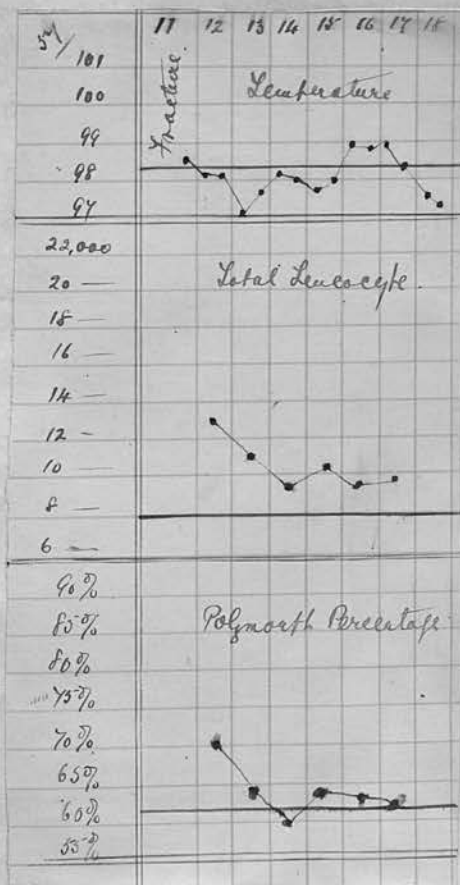 52/ 11 12 13 14 15 16 17 18
101
100
99
98
97
Fracture.
Temperature
22,000
20 —
18 —
16 —
14 —
12 —
10 —
8 —
6 —
Total Leucocyte.
90%
85%
80%
75%
70%
65%
60%
55%
Polymorph Percentage.